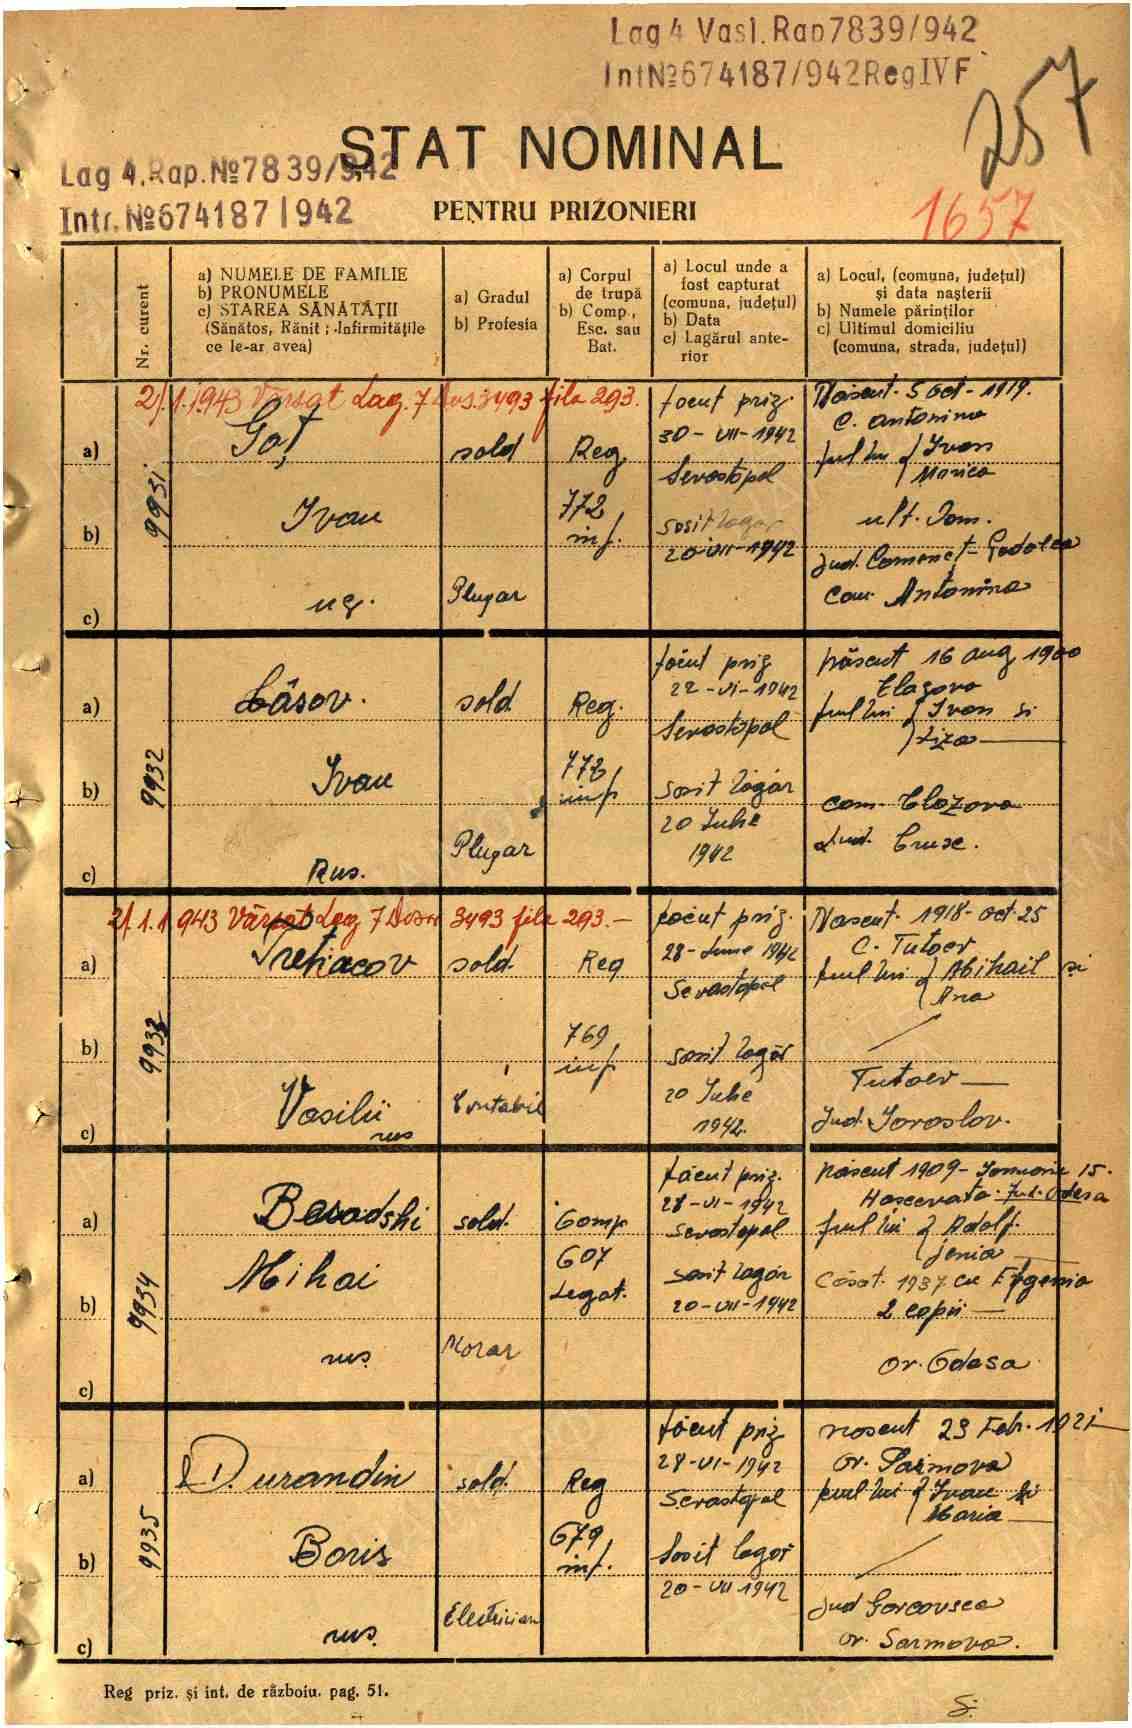 Lag 4 Vasl. Rap 7839/942
Int № 674187/942 Reg IV F
257
STAT NOMINAL
Lag 4. Rap. № 7839/942
Intr. № 674187/942
PENTRU PRIZONIERI
1657
Nr. curent
a) NUMELE DE FAMILIE
b) PRONUMELE
c) STAREA SĂNĂTĂȚII
(Sănătos, Rănit ; Infirmitățile
ce le-ar avea)
a) Gradul
b) Profesia
a) Corpul
de trupă
b) Comp.,
Esc. sau
Bat.
a) Locul unde a
fost capturat
(comuna, județul)
b) Data
c) Lagărul ante-
rior
a) Locul, (comuna, județul)
și data nașterii
b) Numele părinților
c) Ultimul domiciliu
(comuna, strada, județul)
2/.1.1943 Vărsat Lag. 7 Dos 3493 fila 293.
a)
b)
c)
9931
Gaț
Ivan
sold
Plugar
Reg
772
inf.
făcut priz.
30-VII-1942
Sevastopol
sosit lagăr
20-VII-1942
Născut. 5 Oct-1919.
C. Antonina
fiul lui Ivan
Marica
ult. Dom.
Jud. Comeneț-Podolea
Com. Antonina
a)
b)
c)
9932
Câsov.
Ivan
Rus.
sold
Plugar
Reg.
772
inf
făcut priz
22-VI-1942
Sevastopol
sosit lagăr
20 Iulie
1942
născut 16 aug 1900
fiul lui Ivan si
Liza
com. Clazova
Jud. Crusc.
2/.1.1943 Vărsat Lag 7 Dosar 3493 fila 293.-
a)
b)
c)
9933
Tretiacov
Vasilii
rus
sold.
Contabil
Reg
769
inf
făcut priz.
28-Iunie 1942
Sevastopol
sosit lagăr
20 Iulie
1942.
Nascut. 1918-oct. 25
C. Tutoev
fiul lui Mihail și
Ana
Tutoev
Jud. Iaroslov.
a)
b)
c)
9934
Mihai
rus.
sold.
Morar
Comp
607
Legat.
făcut priz.
28-VI-1942
Sevastopol
sosit lagăr
20-VII-1942
născut 1909-Ianuarie 15.
Hașcevata. Jud. Odesa
fiul lui Adolf.
jenia
Căsat. 1937 cu Efgenia
2 copii
or. Odesa
a)
b)
c)
9935
Durandin
Boris
rus.
sold.
Electrician
Reg
679
inf.
făcut priz
28-VI-1942
Sevastopol
Sosit lagăr
20-VII 1942
nascut 23 Febr. 1921
or. Sarmova
fiul lui Ivan și
Maria
Jud Gorcovsca
or. Sarmova.
Reg priz. și int. de războiu. pag. 51.